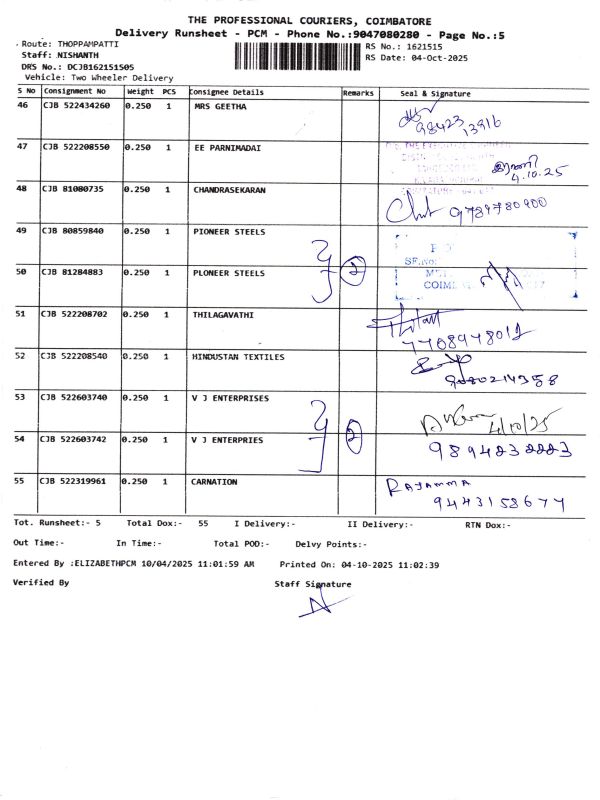 THE PROFESSIONAL COURIERS, COIMBATORE
Delivery Runsheet - PCM - Phone No.:9047080280 - Page No.:5
Route: THOPPAMPATTI
RS No.: 1621515
Staff: NISHANTH
RS Date: 04-Oct-2025
DRS No.: DCJB162151505
Vehicle: Two Wheeler Delivery
S No Consignment No Weight PCS Consignee Details Remarks Seal & Signature
46 CJB 522434260 0.250 1 MRS GEETHA
98423 13916
47 CJB 522208550 0.250 1 EE PARNIMADAI
4.10.25
48 CJB 81080735 0.250 1 CHANDRASEKARAN
9789780900
49 CJB 80859840 0.250 1 PIONEER STEELS
SF.No:
50 CJB 81284883 0.250 1 PLONEER STEELS
2
51 CJB 522208702 0.250 1 THILAGAVATHI
52 CJB 522208540 0.250 1 HINDUSTAN TEXTILES
9080214358
53 CJB 522603740 0.250 1 V J ENTERPRISES
4/10/25
54 CJB 522603742 0.250 1 V J ENTERPRIES
2
9894232223
55 CJB 522319961 0.250 1 CARNATION
RAJAMMA
9443158677
Tot. Runsheet:- 5 Total Dox:- 55 I Delivery:- II Delivery:- RTN Dox:-
Out Time:- In Time:- Total POD:- Delvy Points:-
Entered By :ELIZABETHPCM 10/04/2025 11:01:59 AM Printed On: 04-10-2025 11:02:39
Verified By Staff Signature